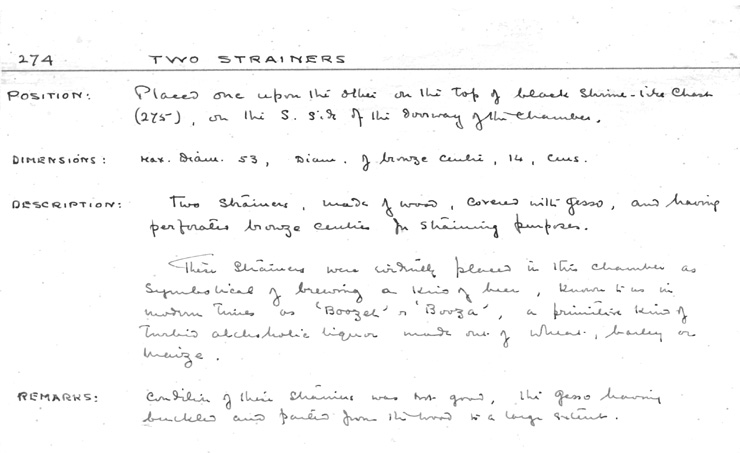 274 TWO STRAINERS
POSITION: Placed one upon the other on the top of black Shrine-like Chest
(275), on the S. side of the doorway of the Chamber.
DIMENSIONS: Max. Diam. 53, Diam. of bronze centre, 14, cms.
DESCRIPTION: Two strainers, made of wood, covered with gesso, and having
perforated bronze centres for straining purposes.
These strainers were evidently placed in this chamber as
symbolical of brewing a kind of beer, known to us in
modern times as 'Boozeh' or 'Booza', a primitive kind of
Turbid alcoholic liquor made out of wheat, barley or
maize.
REMARKS: Condition of these strainers was not good, the gesso having
buckled and parted from the wood to a large extent.